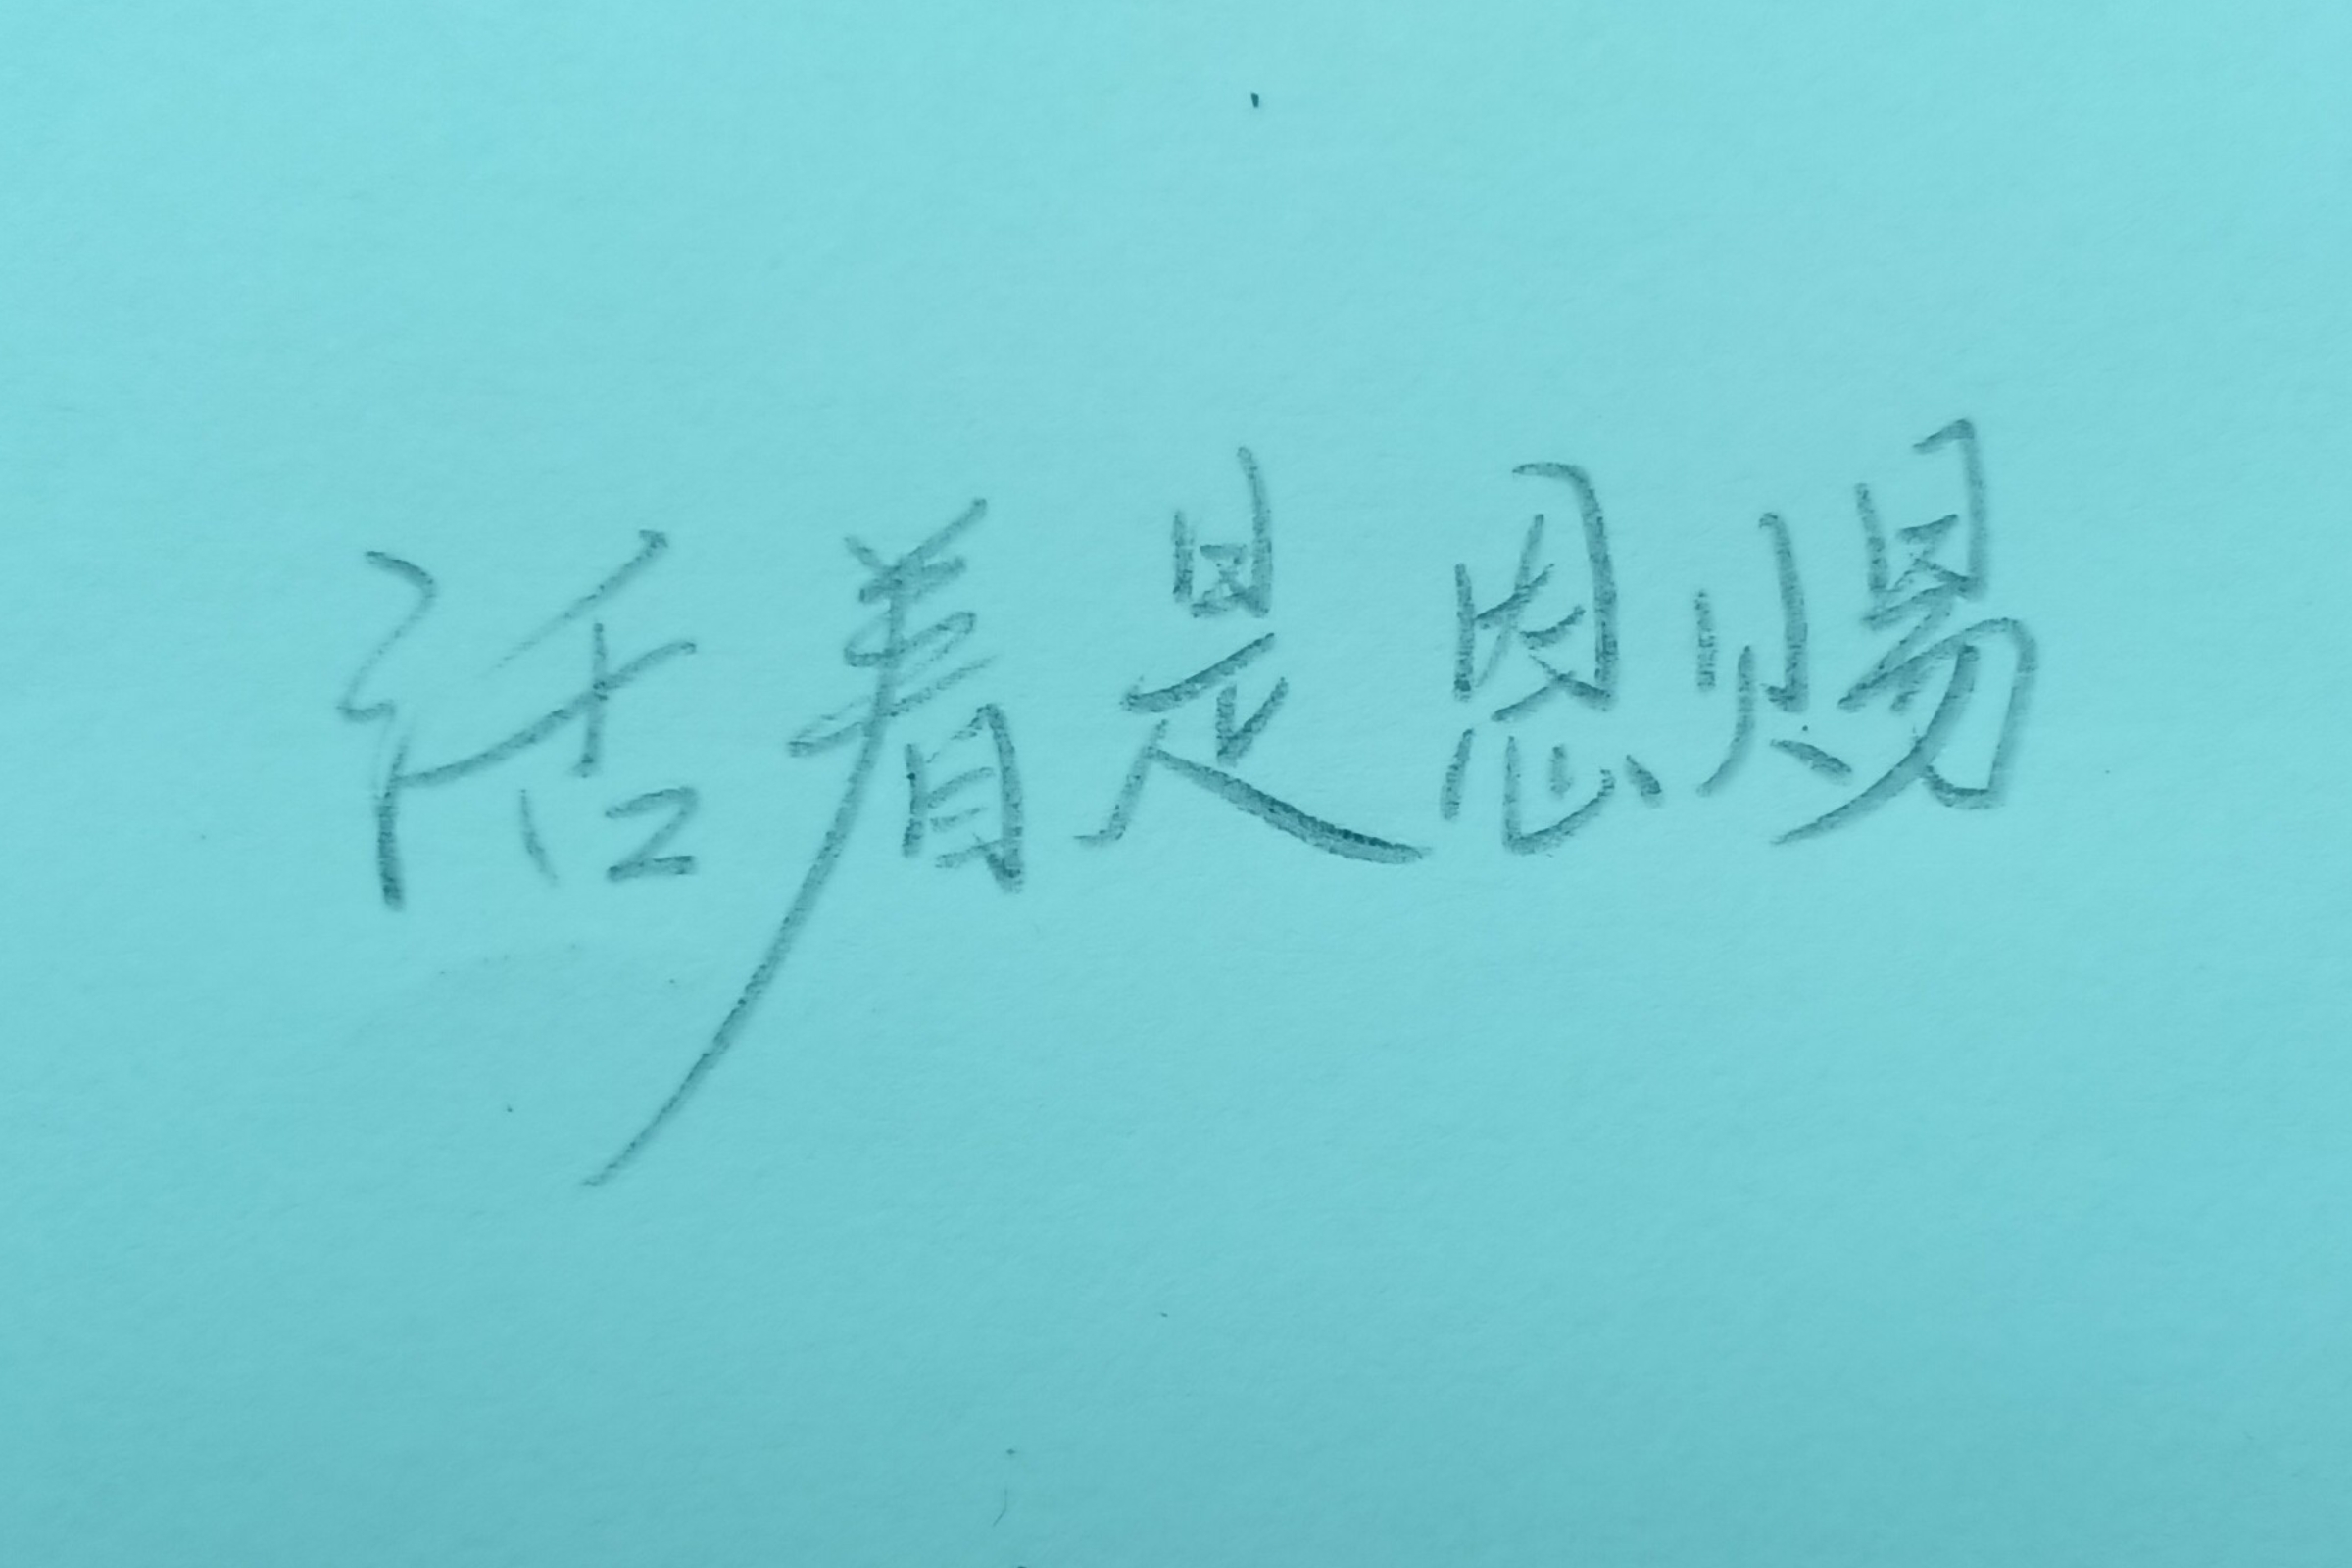 活着是恩赐